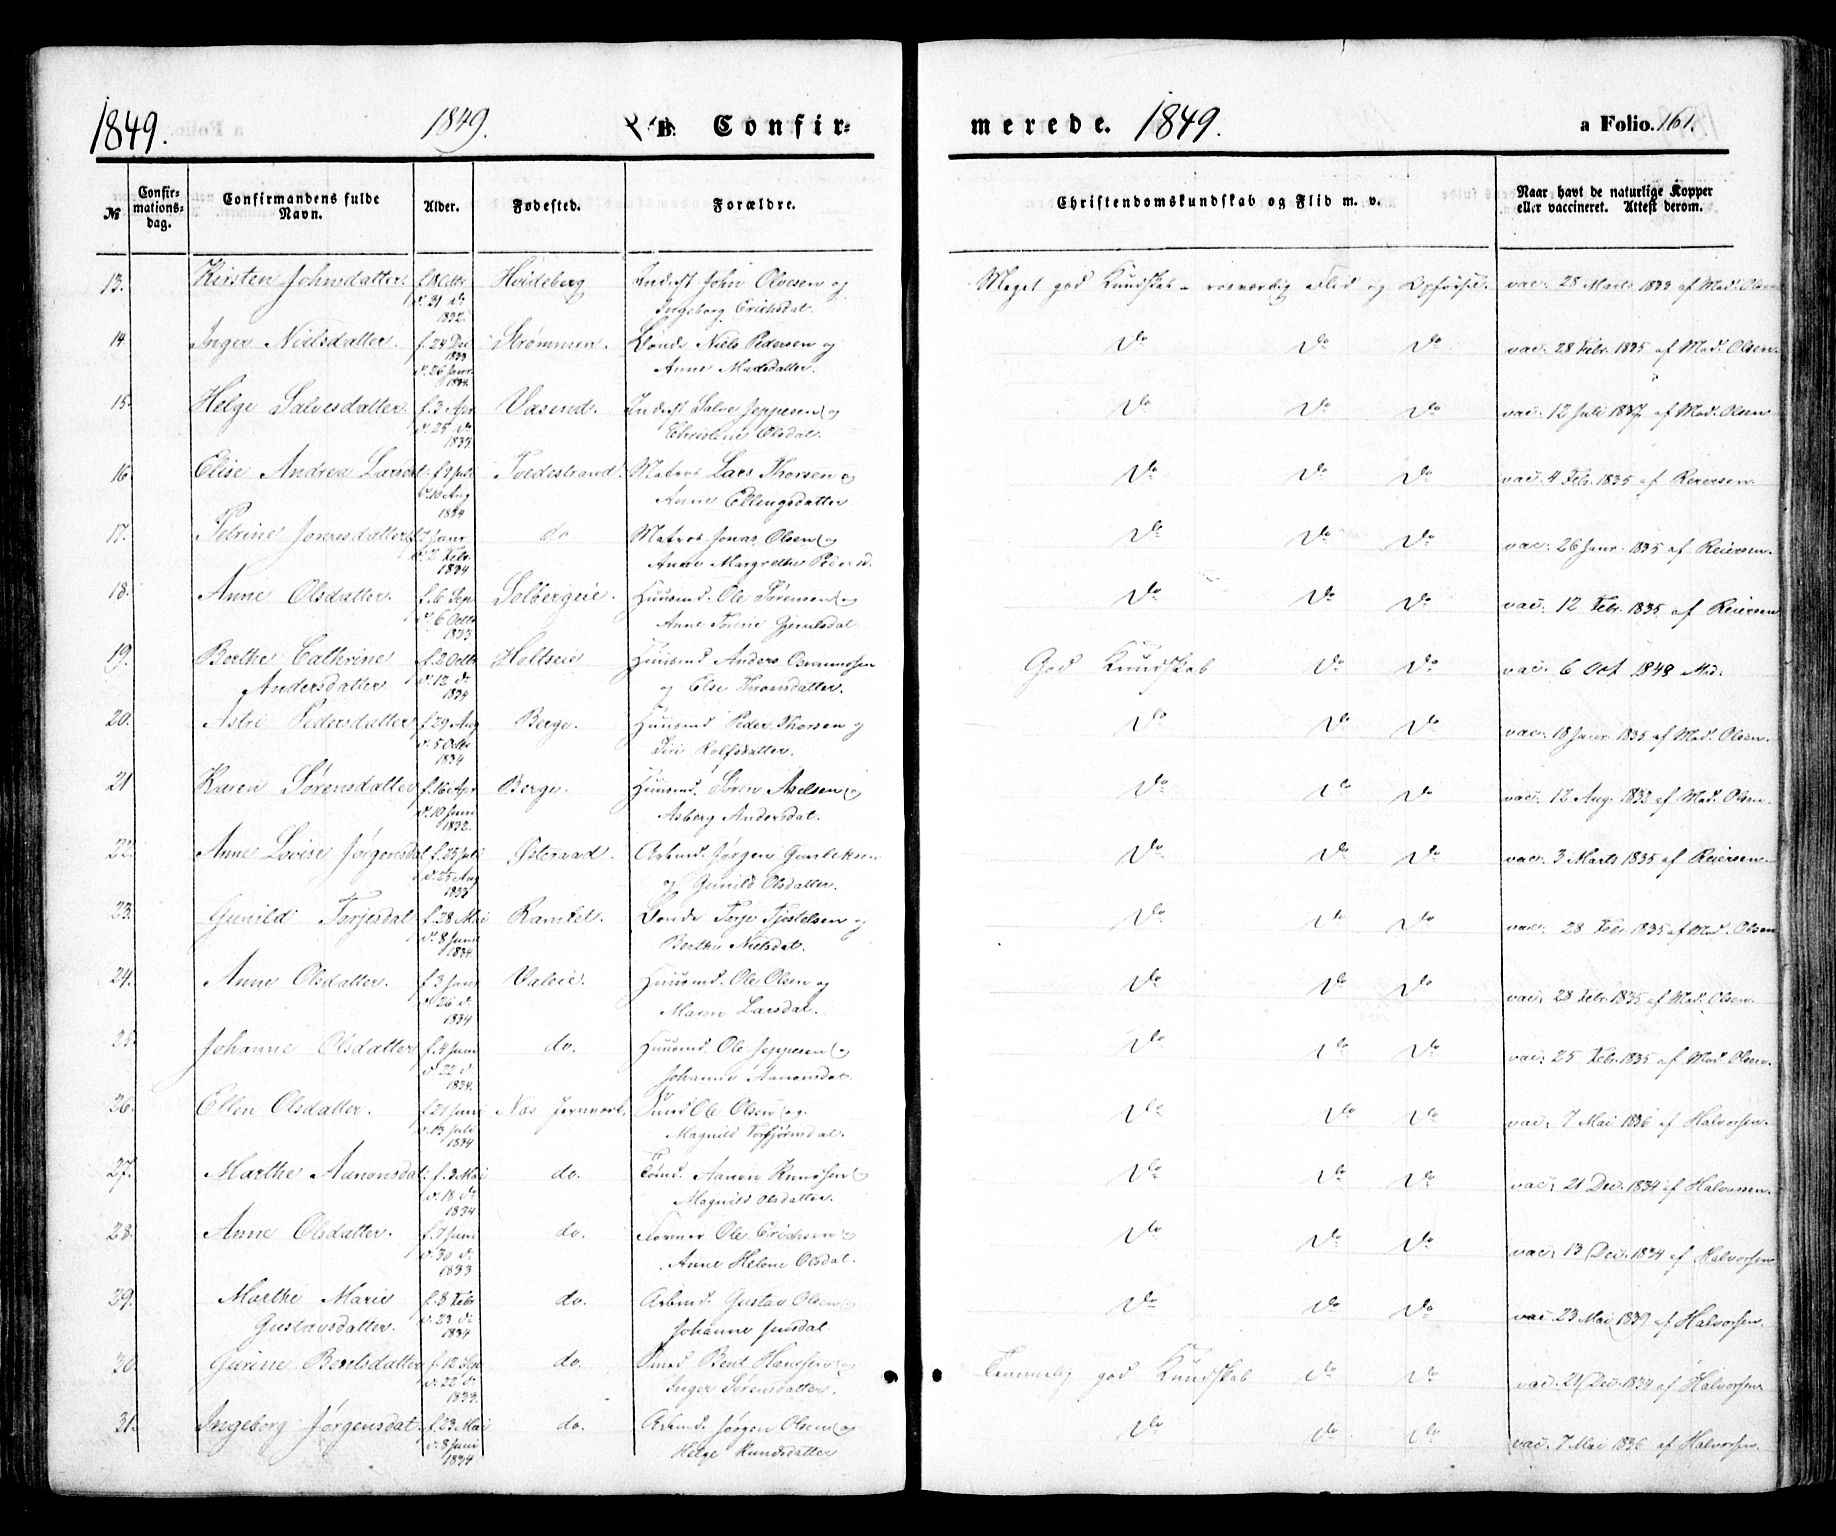 1849. 1849. B. Confir- merede. 1849. a Folio. 161.
№ Confir-mations-dag. Confirmandens fulde Navn. Alder. Fødested. Forældre. Christendomskundskab og Flid m. v. Naar havt de naturlige Kopper eller vaccineret. Attest derom.
13. Kirsten Johnsdatter f. 8 Octbr Inderst John Olvesen og Meget god Kundskab - rosværdig Flid og Opførsel. vac. 28 Marts 1833 af Mad. Olsen
d. 31 do Ingeborg Erichsdat.
1832.
14. Inger Nielsdatter. f. 24 Dec Strømmen. Bonde Niels Pedersen og Do Do Do vac. 28 Febr. 1835 af Mad. Olsen.
1833
d. 26 Janr. Anne Madsdatter.
1834.
15. Helge Salvesdatter f. 3 Apr Vasend. Indерst Salve Jeppesen og Do Do Do vac. 12 Juli 1837 af Mad. Olsen
d. 25 do Christene Olsdat.
1833
16. Elise Andrea Larsd. Tvedestrand. Matros Lars Thorsen og Do Do Do vac. 4 Febr. 1835 af Reiersen.
d. 10 Aug Anne Ellingsdatter
1834
17. Petrine Jonasdatter f. 7 Janr do Matros Jonas Olsen og Do Do Do vac. 26 Janr. 1835 af Reiersen.
d. 2 Febr. Anne Margrethe Pedersd.
1834
18. Anne Olsdatter. f. 6 Sep Solbergeie. Huusmd. Ole Sørensen og Do Do Do vac. 12 Febr. 1835 af Reiersen
d. 6 Octbr Anne Tonne Gjerulsdat.
1833
19. Berthe Cathrine f. 2 Octbr Holtseie Huusmd. Anders Osmundsen God Kundskab Do Do vac. 6 Oct 1848
Andersdatter d. 12 do og Else Thronsdatter.
1834
20. Astri Pedersdatter f. 29 Aug Berge. Huusmd. Peder Thorsen og Do Do Do vac. 18 Janr. 1835 af Mad. Olsen.
d. 5 Octbr Siri Rolfsdatter.
1834
21 Karen Sørensdatter f. 16 Apr Berge. Huusmd. Søren Axelsen og Do Do Do vac. 12 Aug. 1832 af Mad. Olsen.
d. 10 Juni Asberg Andersdat.
1832.
22. Anne Lovise Jørgensdat f. 25 Juli Østeraad. Arbmd. Jørgen Gunleksen Do Do Do vac. 3 Marts 1835 af Reiersen.
d. 25 Aug og Gunild Olsdatter.
1833
23. Gunild Torjesdat f. 28 Mai Ramlet. Bonde Torje Tjostelsen og Do Do Do vac. 28 Febr. 1835 af Mad. Olsen
d. 8 Juni Berthe Nielsdat.
1834.
24. Anne Olsdatter. f. 3 Janr Valeie. Huusmd. Ole Olsen og Do Do Do vac. 28 Febr. 1835 af Mad. Olsen.
d. 26 do Maren Larsdat.
1834
25. Johanne Olsdatter f. 4 Juni do. Huusmd. Ole Jeppesen og Do Do Do vac. 25 Febr. 1835 af Mad. Olsen.
d. 22 do Johanne Aanonsdat.
1834.
26. Ellen Olsdatter. f. 21 Juni Næs Jernverk. Smed Ole Olsen og Do Do Do vac. 7 Mai 1836 af Halvorsen.
d. 13 Juli Magnild Torbjørnsdat.
1834
27. Marthe Aanonsdat. f. 3 Mai do. Tømd. Aanon Knudsen og Do Do Do vac. 21 Dec. 1834 af Halvorsen.
d. 18 do Magnild Olsdatter.
1834
28. Anne Olsdatter. f. 7 Juni do. Former Ole Erichsen og Do Do Do vac. 13 Dec. 1834 af Halvorsen
d. 30 do Anne Helene Olsdat.
1833
29. Marthe Marie f. 8 Febr do. Arbmd. Gustav Olsen og Do Do Do vac. 23 Mai 1839 af Halvorsen.
Gustavsdatter. d. 23 do Johanne Jensdat
1834
30 Gurine Bentsdatter f. 12 Sep do. Smed Bent Hansen og Temmelig god Kundskab Do Do vac. 21 Dec. 1834 af Halvorsen
d. 20 do Inger Sørensdatter.
1833.
31. Ingeborg Jørgensdat. f. 23 Mai do. Arbmd. Jørgen Olsen og Do Do Do vac. 7 Mai 1836 af Halvorsen.
d. 8 Juni Helge Knudsdatter
1834